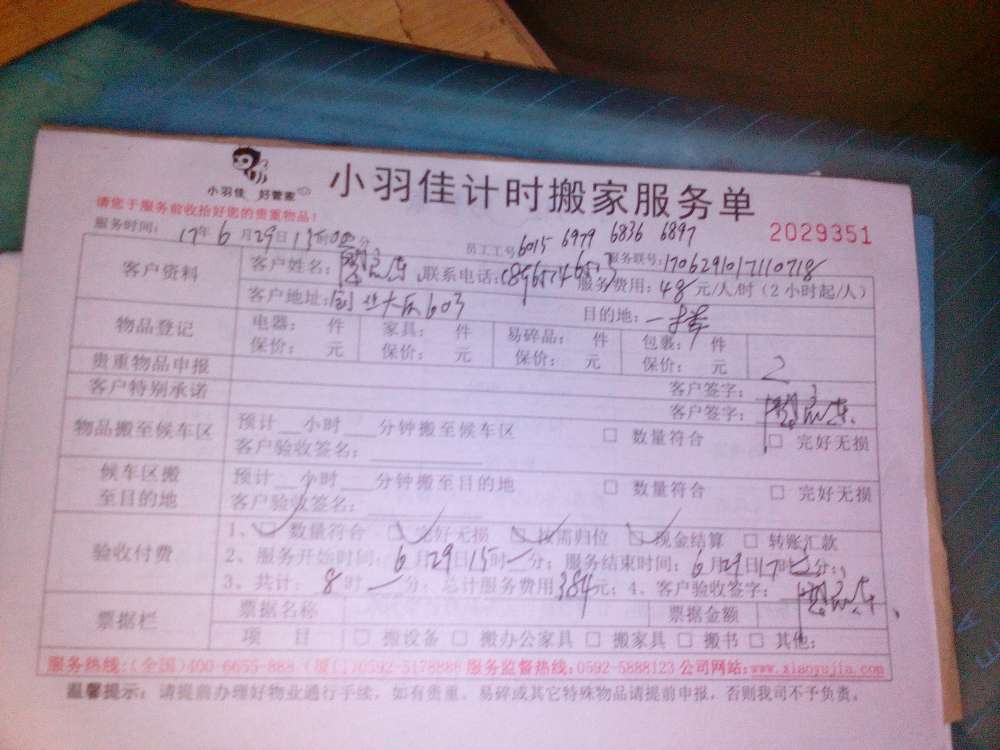 小羽佳 好管家
小羽佳计时搬家服务单
请您于服务前收拾好您的贵重物品!
2029351
服务时间: 17年6月29日15时00分 员工工号 6015 6979 6836 6897 服务联号: 1706291017110718
客户资料 客户姓名: 联系电话: 服务费用: 48元/人/时(2小时起/人)
客户地址: 创业大厦603 目的地: 一楼
物品登记 电器: 件 家具: 件 易碎品: 件 包裹: 件
保价: 元 保价: 元 保价: 元 保价: 元
贵重物品申报 客户签字:
客户特别承诺 客户签字:
物品搬至候车区 预计__小时___分钟搬至候车区 □ 数量符合 □ 完好无损
客户验收签名:
候车区搬至目的地 预计__小时___分钟搬至目的地 □ 数量符合 □ 完好无损
客户验收签名:
验收付费 1、☑ 数量符合 ☑ 完好无损 ☑ 按需归位 ☑ 现金结算 □ 转账汇款
2、服务开始时间: 6月29日15时一分; 服务结束时间: 6月29日17时一分;
3、共计: 8时一分; 总计服务费用384元; 4、客户验收签字:
票据栏 票据名称 票据金额
项 目 □ 搬设备 □ 搬办公家具 □ 搬家具 □ 搬书 □ 其他:
服务热线:(全国)400-6655-888 (厦门)0592-5178888 服务监督热线:0592-5888123 公司网站:www.xiaoyujia.com
温馨提示: 请提前办理好物业通行手续, 如有贵重、易碎或其它特殊物品请提前申报, 否则我司不予负责。